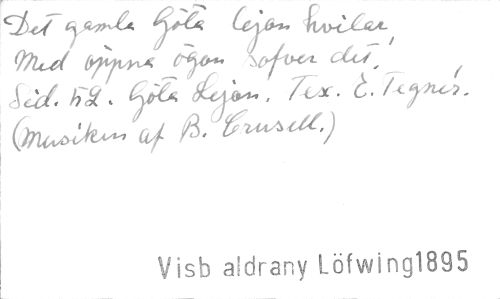 Det gamla Göta lejon hvilar,
Med öppna ögon sofver det,
Sid. 52. Göta Lejon. Tex. E. Tegnér.
(Musiken af B. Crusell.)
Visb aldrany Löfwing1895